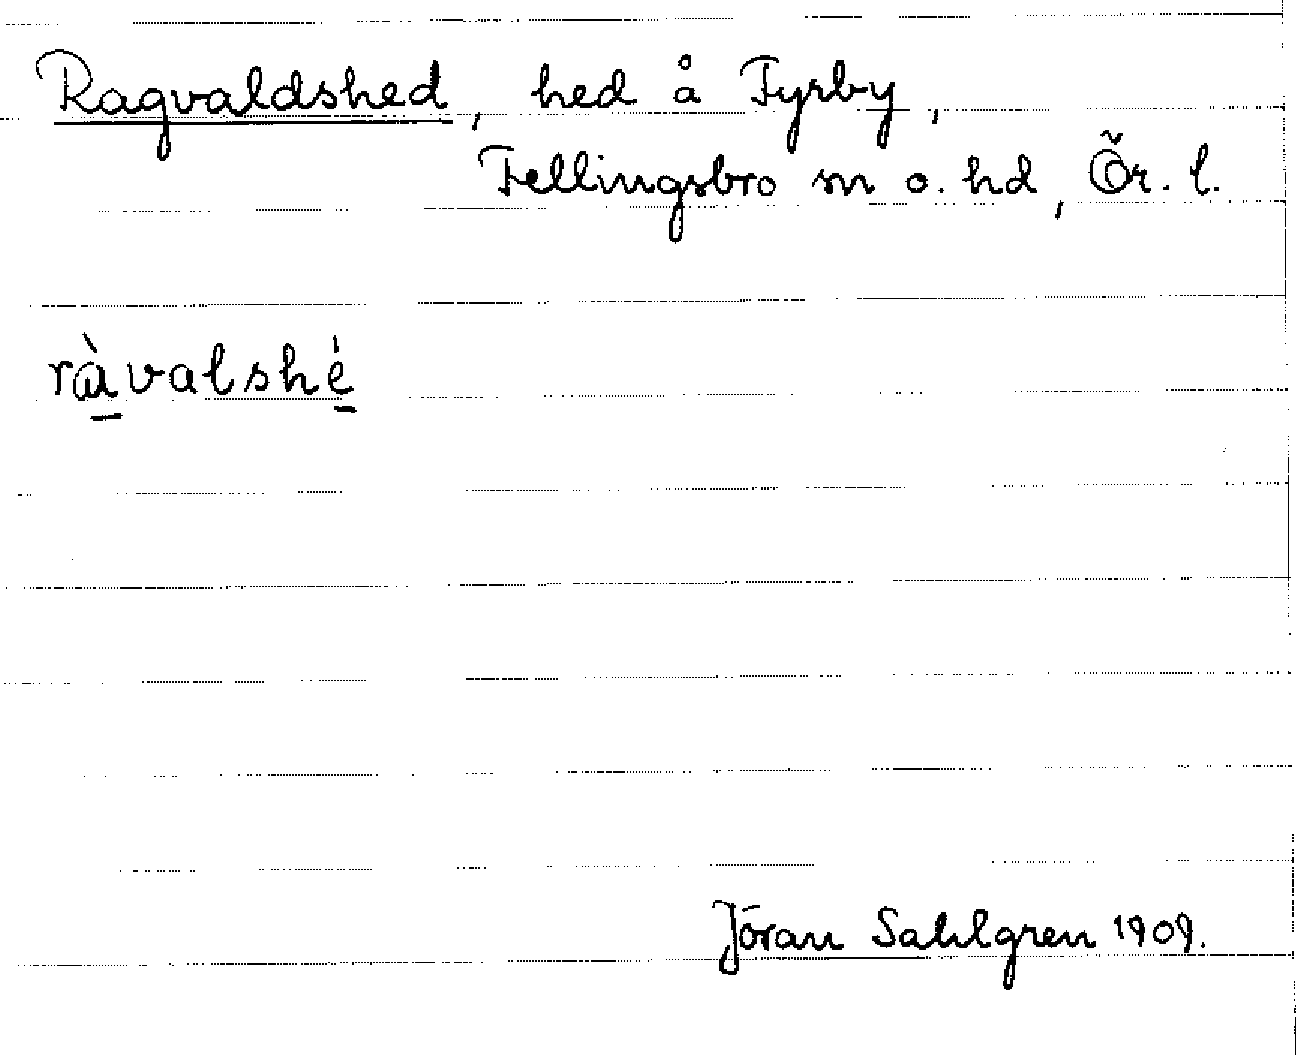 Ragvaldshed, hed å Fyrby,
Fellingsbro sn o. hd, Ör. l.
ràvalshé
Jöran Sahlgren 1909.